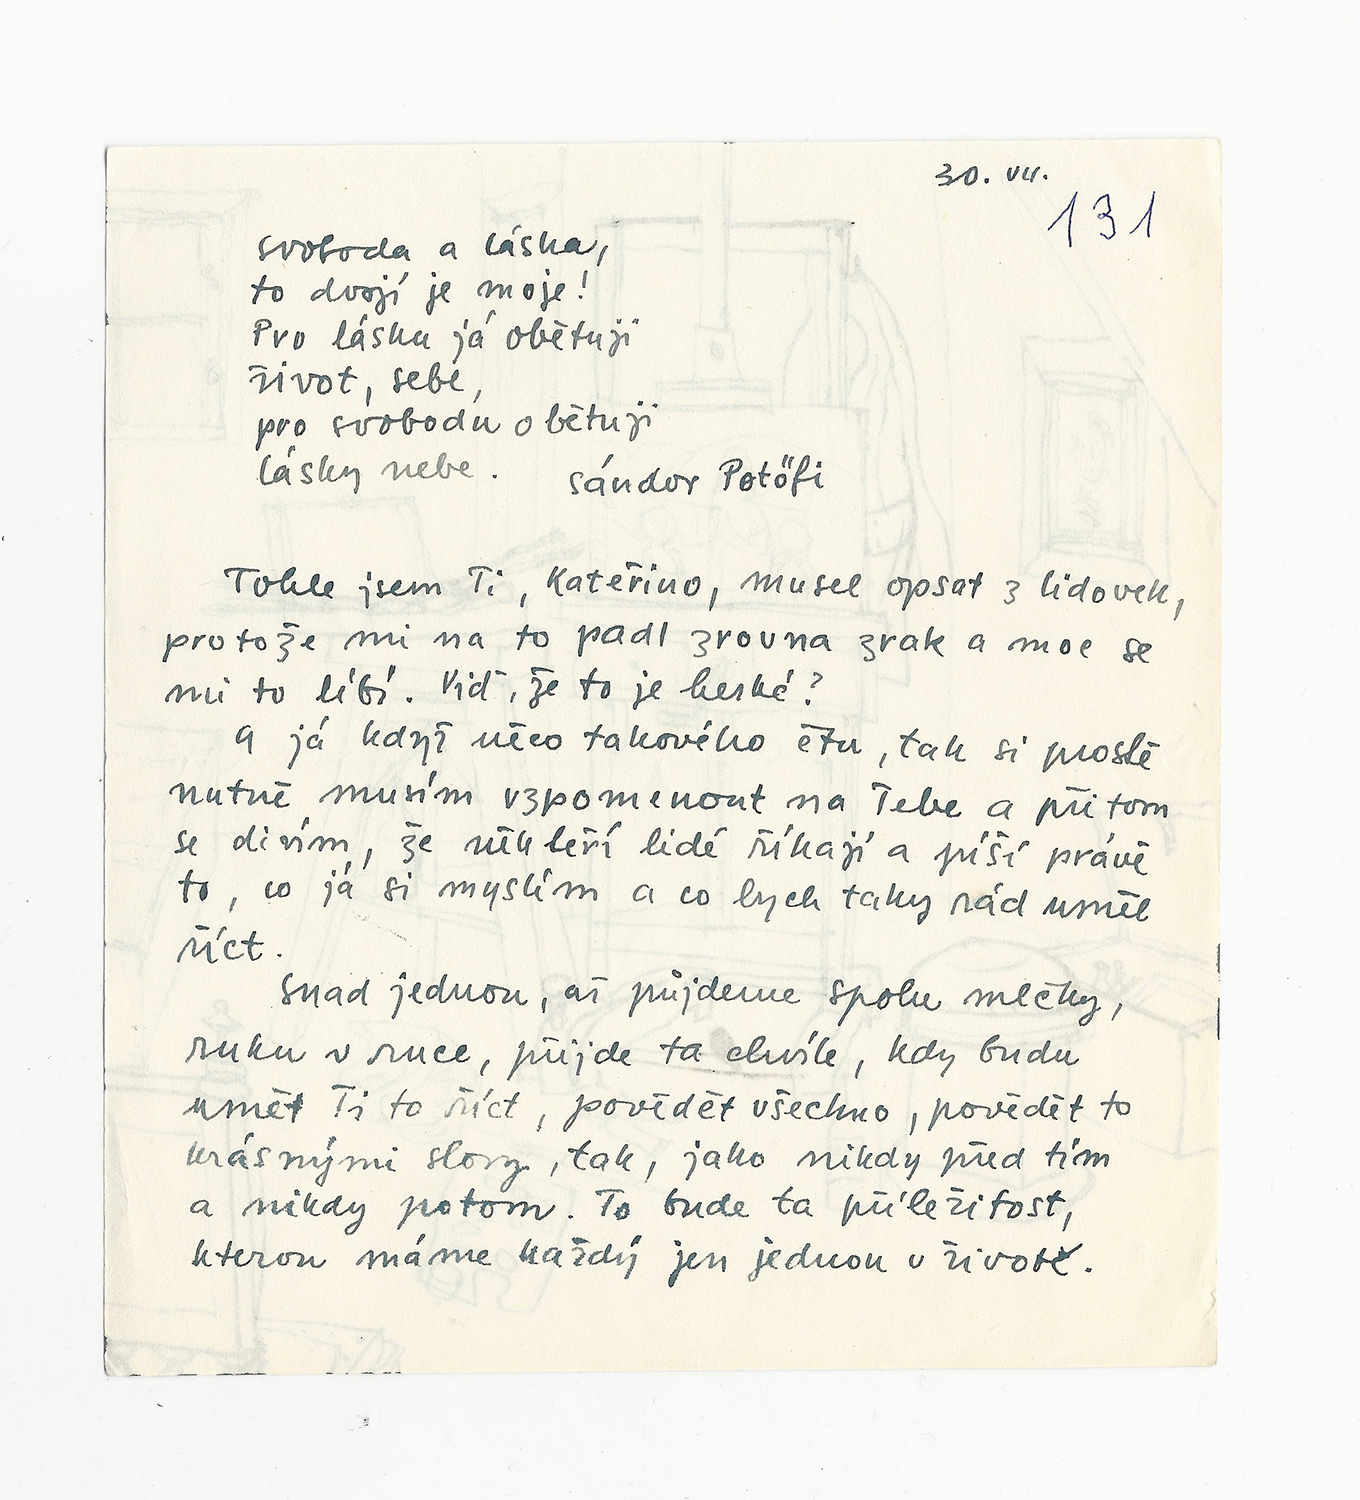 30. VII.
131
svoboda a láska,
to dvojí je moje!
Pro lásku já obětuji
život, sebe,
pro svobodu obětuji
lásky nebe.
Sándor Potőfi
Tohle jsem Ti, Kateřino, musel opsat z lidovek,
protože mi na to padl zrovna zrak a moc se
mi to líbí. Viď, že to je hezké?
A já když něco takového čtu, tak si prostě
nutně musím vzpomenout na Tebe a při tom
se divím, že někteří lidé říkají a píší právě
to, co já si myslím a co bych taky rád uměl
říct.
Snad jednou, až půjdeme spolu mlčky,
ruku v ruce, přijde ta chvíle, kdy budu
umět Ti to říct, povědět všechno, povědět to
krásnými slovy, tak, jako nikdy před tím
a nikdy potom. To bude ta příležitost,
kterou máme každý jen jednou v životě.